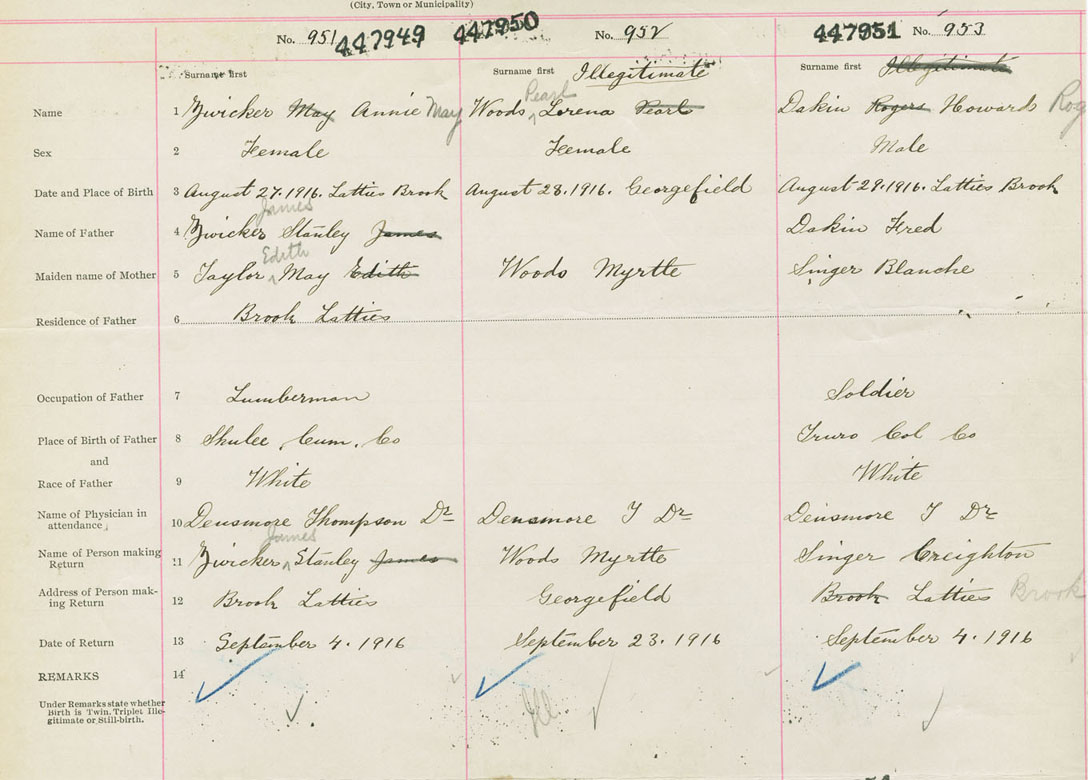 (City, Town or Municipality)
No. 951 447949 447950 No. 952 447951 No. 953
Surname first Surname first Illegitimate Surname first Illegitimate
Name 1 Zwicker May Annie May Woods Pearl Lorena Pearl Dakin Rogers Howard Rog
Sex 2 Female Female Male
Date and Place of Birth 3 August 27.1916. Latties Brook August 28.1916. Georgefield August 29.1916. Latties Brook
Name of Father 4 Zwicker James Stanley James Dakin Fred
Maiden name of Mother 5 Taylor Edith May Edith Woods Myrtle Singer Blanche
Residence of Father 6 Brook Latties
Occupation of Father 7 Lumberman Soldier
Place of Birth of Father 8 Shulee Cum. Co Truro Col Co
and
Race of Father 9 White White
Name of Physician in
attendance, 10 Densmore Thompson Dr Densmore T Dr Densmore T Dr
Name of Person making
Return 11 Zwicker James Stanley James Woods Myrtle Singer Creighton
Address of Person mak-
ing Return 12 Brook Latties Georgefield Brook Latties Brook
Date of Return 13 September 4. 1916 September 23. 1916 September 4. 1916
REMARKS 14
Under Remarks state whether
Birth is Twin, Triplet Ille-
gitimate or Still-birth.
Ill